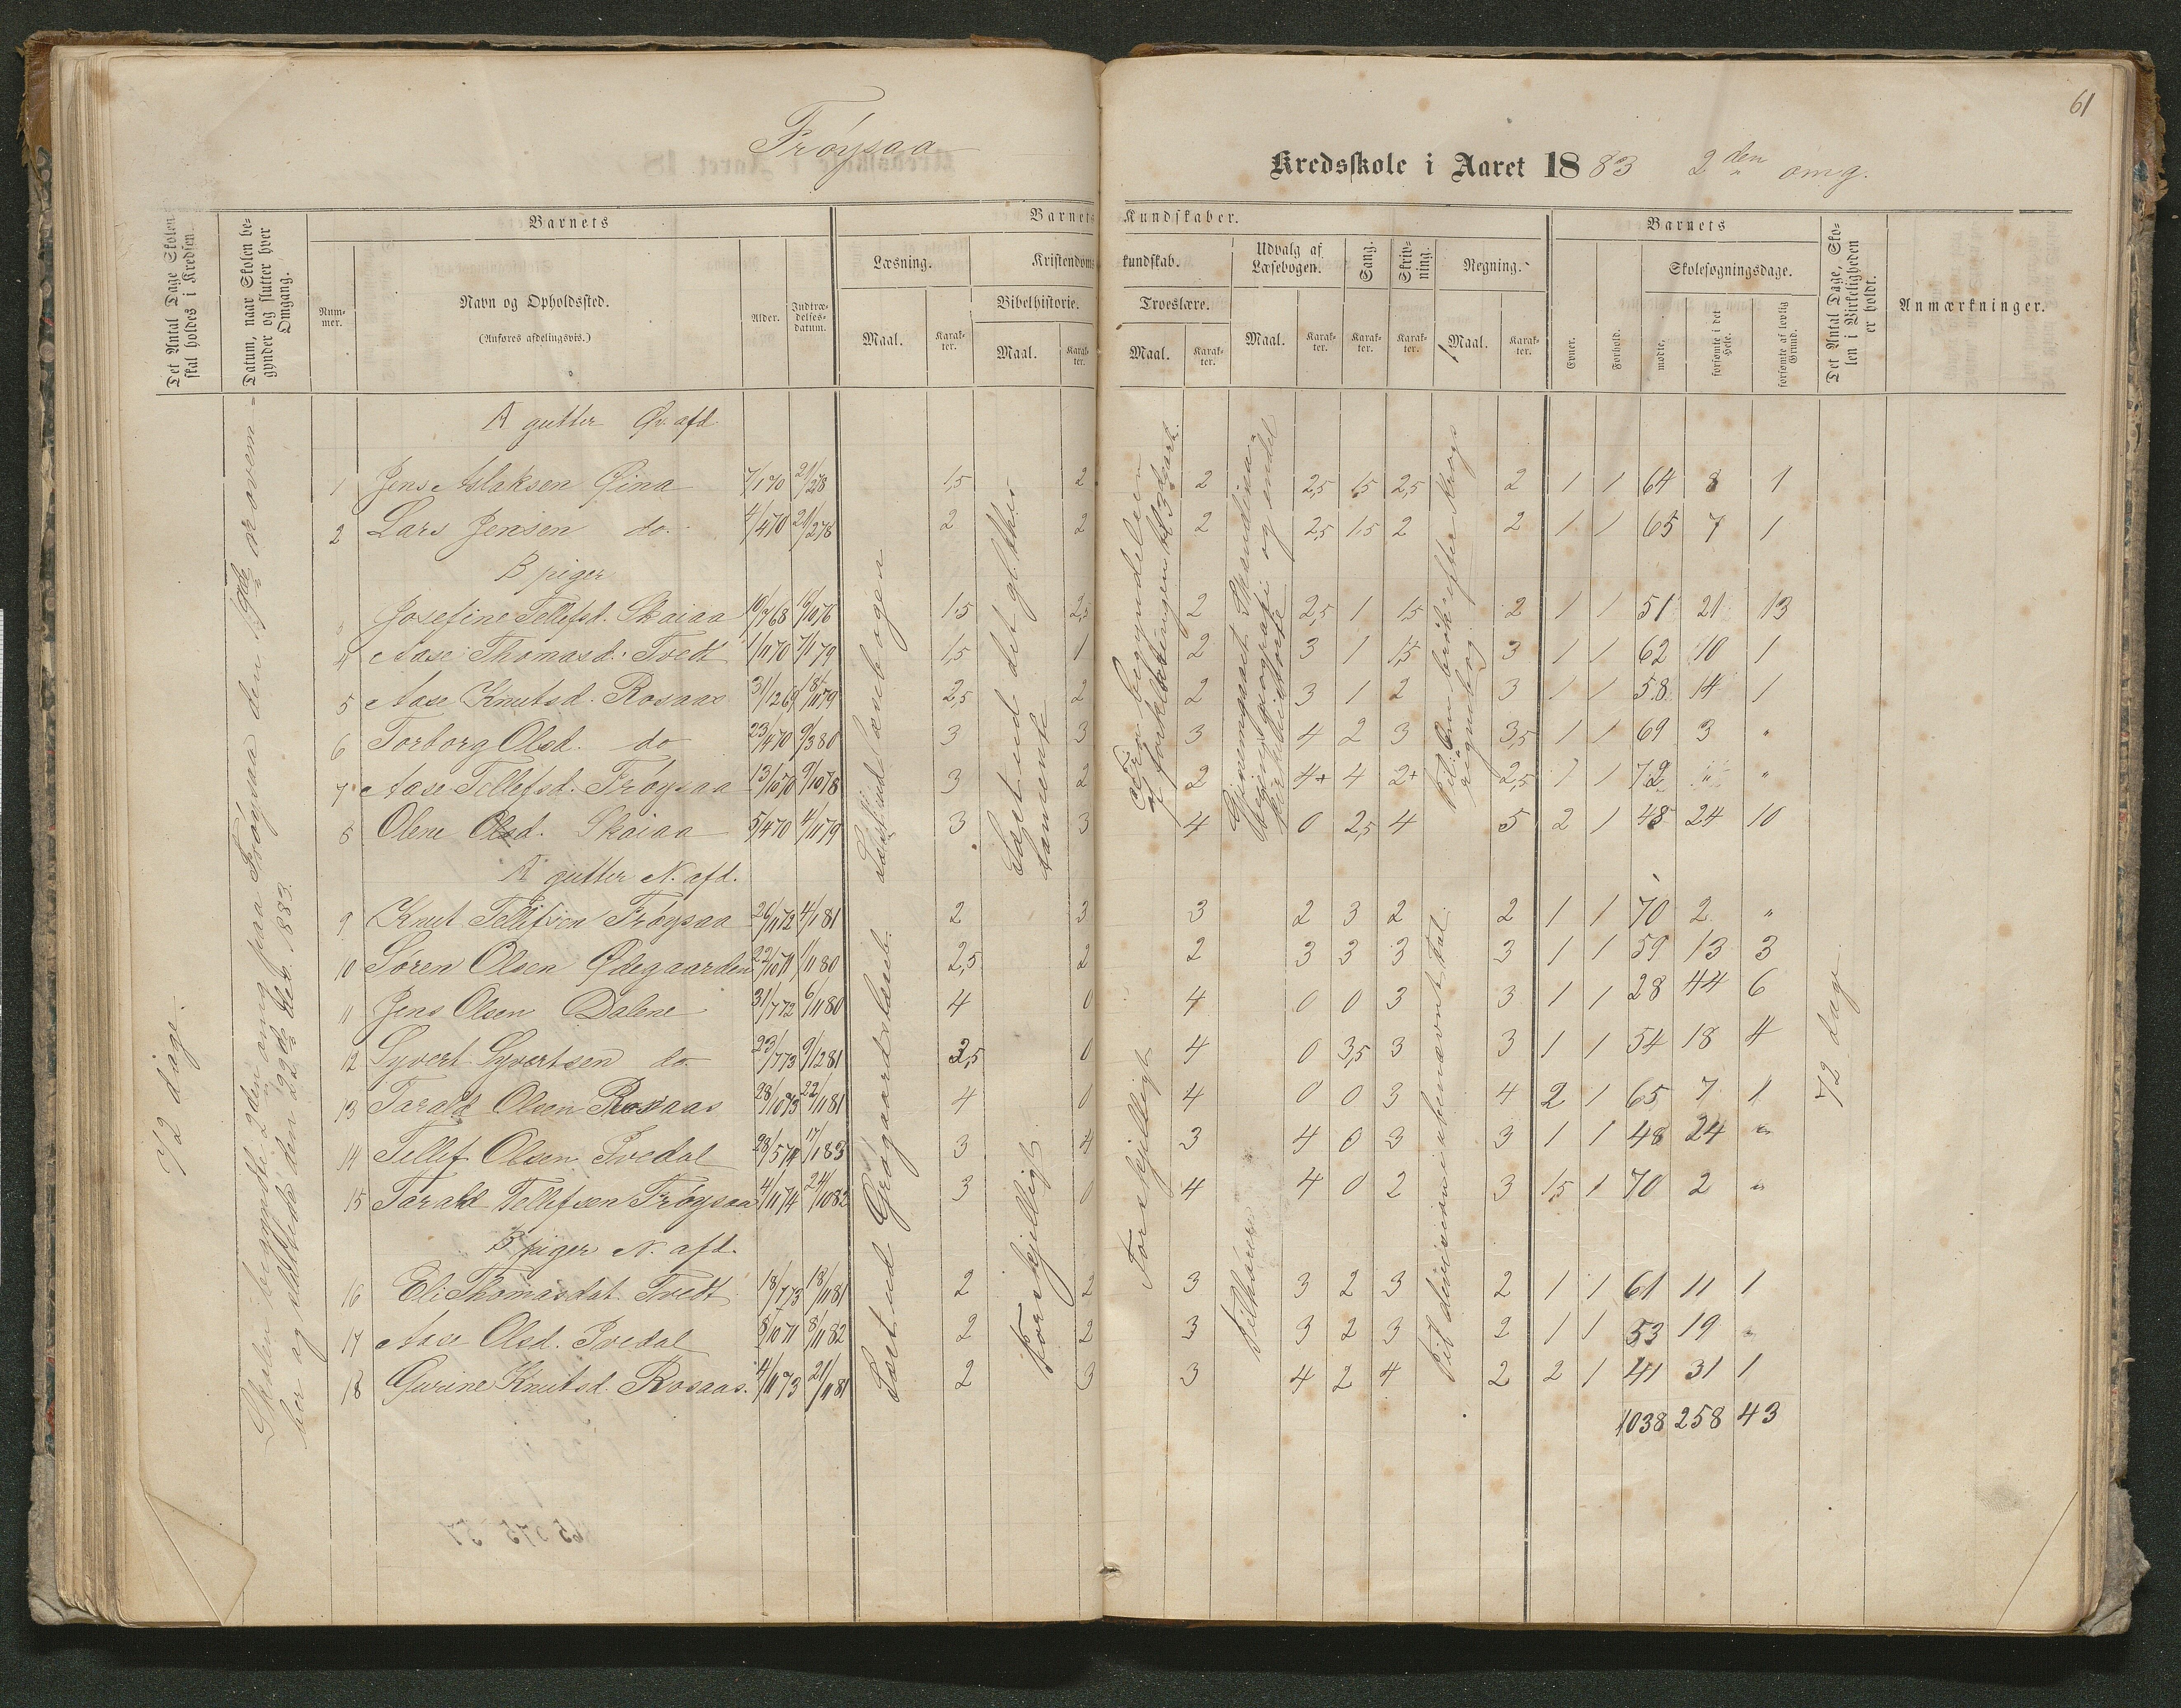 Frøysaa
Kredsskole i Aaret 1883 2den omg.
61
Det Antal Dage Skolen skal holdes i Kredsen.
Datum, naar Skolen begynder og slutter hver Omgang.
Barnets
Nummer.
Navn og Opholdssted.
(Anføres afdelingsvis.)
Alder.
Indtrædelsesdatum.
Barnets Kundskaber.
Læsning.
Maal. Karakter.
Kristendomskundskab.
Bibelhistorie.
Maal. Karakter.
Troeslære.
Maal. Karakter.
Udvalg af Læsebogen.
Maal. Karakter.
Sang.
Karakter.
Skrivning.
Karakter.
Regning.
Maal. Karakter.
Barnets
Evner.
Forhold.
Skolesøgningsdage.
mødte.
forsømte i det Hele.
forsømte af lovlig Grund.
Det Antal Dage, Skolen i Virkeligheden er holdt.
Anmærkninger.
72 dage.
Skolen begyndte 2den omg paa Frøysaa den 19de november og sluttede den 22de deb. 1883.
A gutter Øv. afd
1 Jens Aslaksen Øina 7/1 70 21/2 78 1,5 2 2 2,5 1,5 2,5 2 1 1 64 8 1
2 Lars Jensen do. 4/4 70 21/2 78 2 2 2 2,5 1,5 2 2 1 1 65 7 1
B piger
Josefine Tellefsd. Skaiaa 10/7 68 16/10 76 1,5 2,5 2 2,5 1 1,5 2 1 1 51 21 13
4 Aase Thomasd. Tvedt 1/11 70 7/11 79 1,5 1 2 3 1 1,5 3 1 1 62 10 1
5 Aase Knutsd. Rosaas 31/12 69 18/11 79 2,5 2 2 3 1 2 3 1 1 58 14 1
6 Torborg Olsd. do 23/4 70 9/3 80 3 3 3 4 2 3 3,5 1 1 69 3 "
7 Aase Tellefsd. Frøysaa 13/10 70 9/10 78 3 2 2 4+ 4 2+ 2,5 1 1 72 " "
8 Olene Olsd. Skaiaa 5/4 70 4/11 79 3 3 4 0 2,5 4 5 2 1 48 24 10
A gutter N. afd.
9 Knut Tellefsen Frøysaa 26/11 72 4/1 81 2 3 3 2 3 2 2 1 1 70 2 "
10 Søren Olsen Ødegaarden 22/10 71 1/11 80 2,5 2 2 3 3 3 3 1 1 59 13 3
11 Jens Olsen Dalene 31/7 72 6/11 80 4 0 4 0 0 3 3 1 1 28 44 6
12 Syvert Syvertsen do. 23/7 73 9/12 81 3,5 0 4 0 3,5 3 3 1 1 54 18 4
13 Tarald Olsen Rosaas 28/10 73 22/11 81 4 0 4 0 0 3 4 2 1 65 7 1
14 Tellef Olsen Ivedal 28/5 74 17/1 83 3 4 3 4 0 3 3 1 1 48 24 "
15 Tarald Tellefsen Frøysaa 4/11 74 24/10 82 3 0 4 4 0 2 3 1,5 1 70 2 "
B piger N. afd.
16 Eli Thomasdat. Tvedt 18/7 73 18/11 81 2 2 3 3 2 3 2 1 1 61 11 1
17 Aase Olsd. Ivedal 8/10 71 8/11 82 2 2 3 3 2 3 2 1 1 53 19 "
18 Gurine Knutsd. Rosaas. 4/11 73 21/11 81 2 3 3 4 2 4 2 2 1 41 31 1
1038 258 43
Læst ud Læsebogen
Læst ud det gl. tamente
Fra begyndelsen af forklaringen til 3 part.
Gjennemgaaet Skandinaviens geografi og endel
Til Om brøk efter Krogs regnebog.
Forskjelligt
Forskjelligt
Tilhørere
Til division i ubenævnt tal.
72 dage